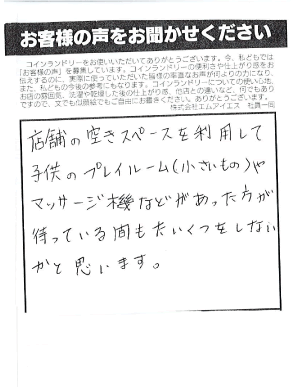 お客様の声をお聞かせください
コインランドリーをお使いいただいてありがとうございます。今、私どもでは
「お客様の声」を募集しています。コインランドリーの便利さや仕上がり感をお
伝えするのに、実際に使っていただいた皆様の率直なお声が何よりの力になり、
また、私どもの今後の参考にもなります。コインランドリーについての使い心地、
お店の雰囲気、洗濯や乾燥した後の仕上がり感、他店との違いなど、何でもあり
ですので、文でも似顔絵でもご自由にお書きください。ありがとうございます。
株式会社エムアイエス 社員一同
店舗の空きスペースを利用して
子供のプレイルーム(小さいもの)や
マッサージ機などがあった方が
待っている間もたいくつをしない
かと思います。